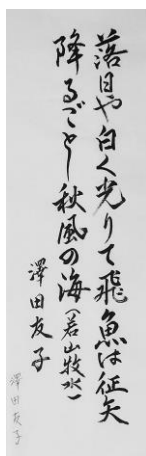 落日や白く光りて飛魚は征矢
降るごとし秋風の海(若山牧水)
澤田友子
澤田友子